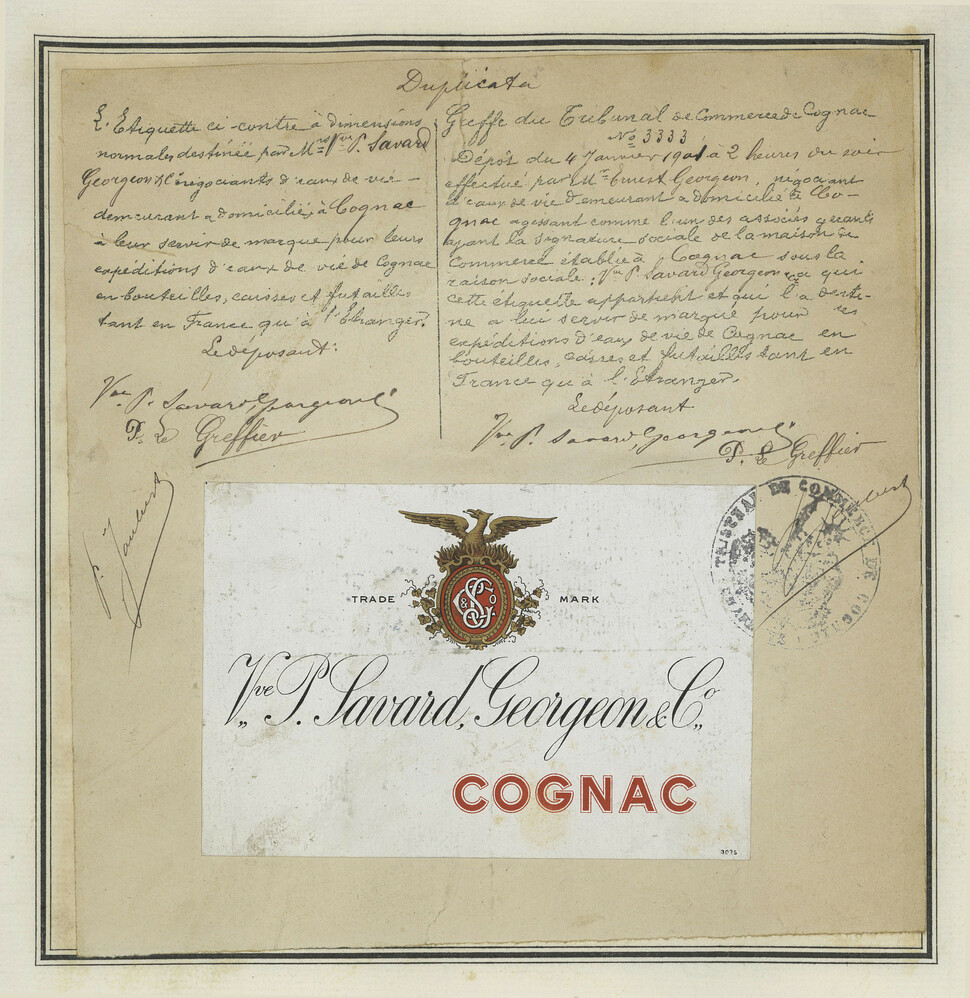 Duplicata
L'Etiquette ci-contre à dimensions
normales destinée par Mrs Vve P. Savard
Georgeon & Co négociants d'eaux de vie -
demeurant & domiciliés à Cognac
à leur servir de marque pour leurs
expéditions d'eaux de vie de Cognac
en bouteilles, caisses et futailles
tant en France qu'à l'Etranger.
Le déposant:
Vve P. Savard, Georgeon & Co
P. Le Greffier
P. Jaubert
Greffe du Tribunal de Commerce de Cognac
No 3333
Dépôt du 4 Janvier 1901 à 2 heures du soir
effectué par Mr Ernest Georgeon, négociant
d'eaux de vie demeurant & domicilié à Co-
gnac agissant comme l'un des associés gérants
ayant la signature sociale de la maison de
Commerce établie à Cognac sous la
raison sociale: Vve P. Savard Georgeon & Co à qui
cette étiquette appartient et qui l'a desti-
né à lui servir de marque pour ses
expéditions d'eaux de vie de Cognac en
bouteilles, caisses et futailles tant en
France qu'à l'Etranger.
Le déposant
Vve P. Savard, Georgeon & Co
P. Le Greffier
Jaubert
TRIBUNAL DE COMMERCE DE COGNAC
TRADE MARK
Vve P. Savard, Georgeon & Co
COGNAC